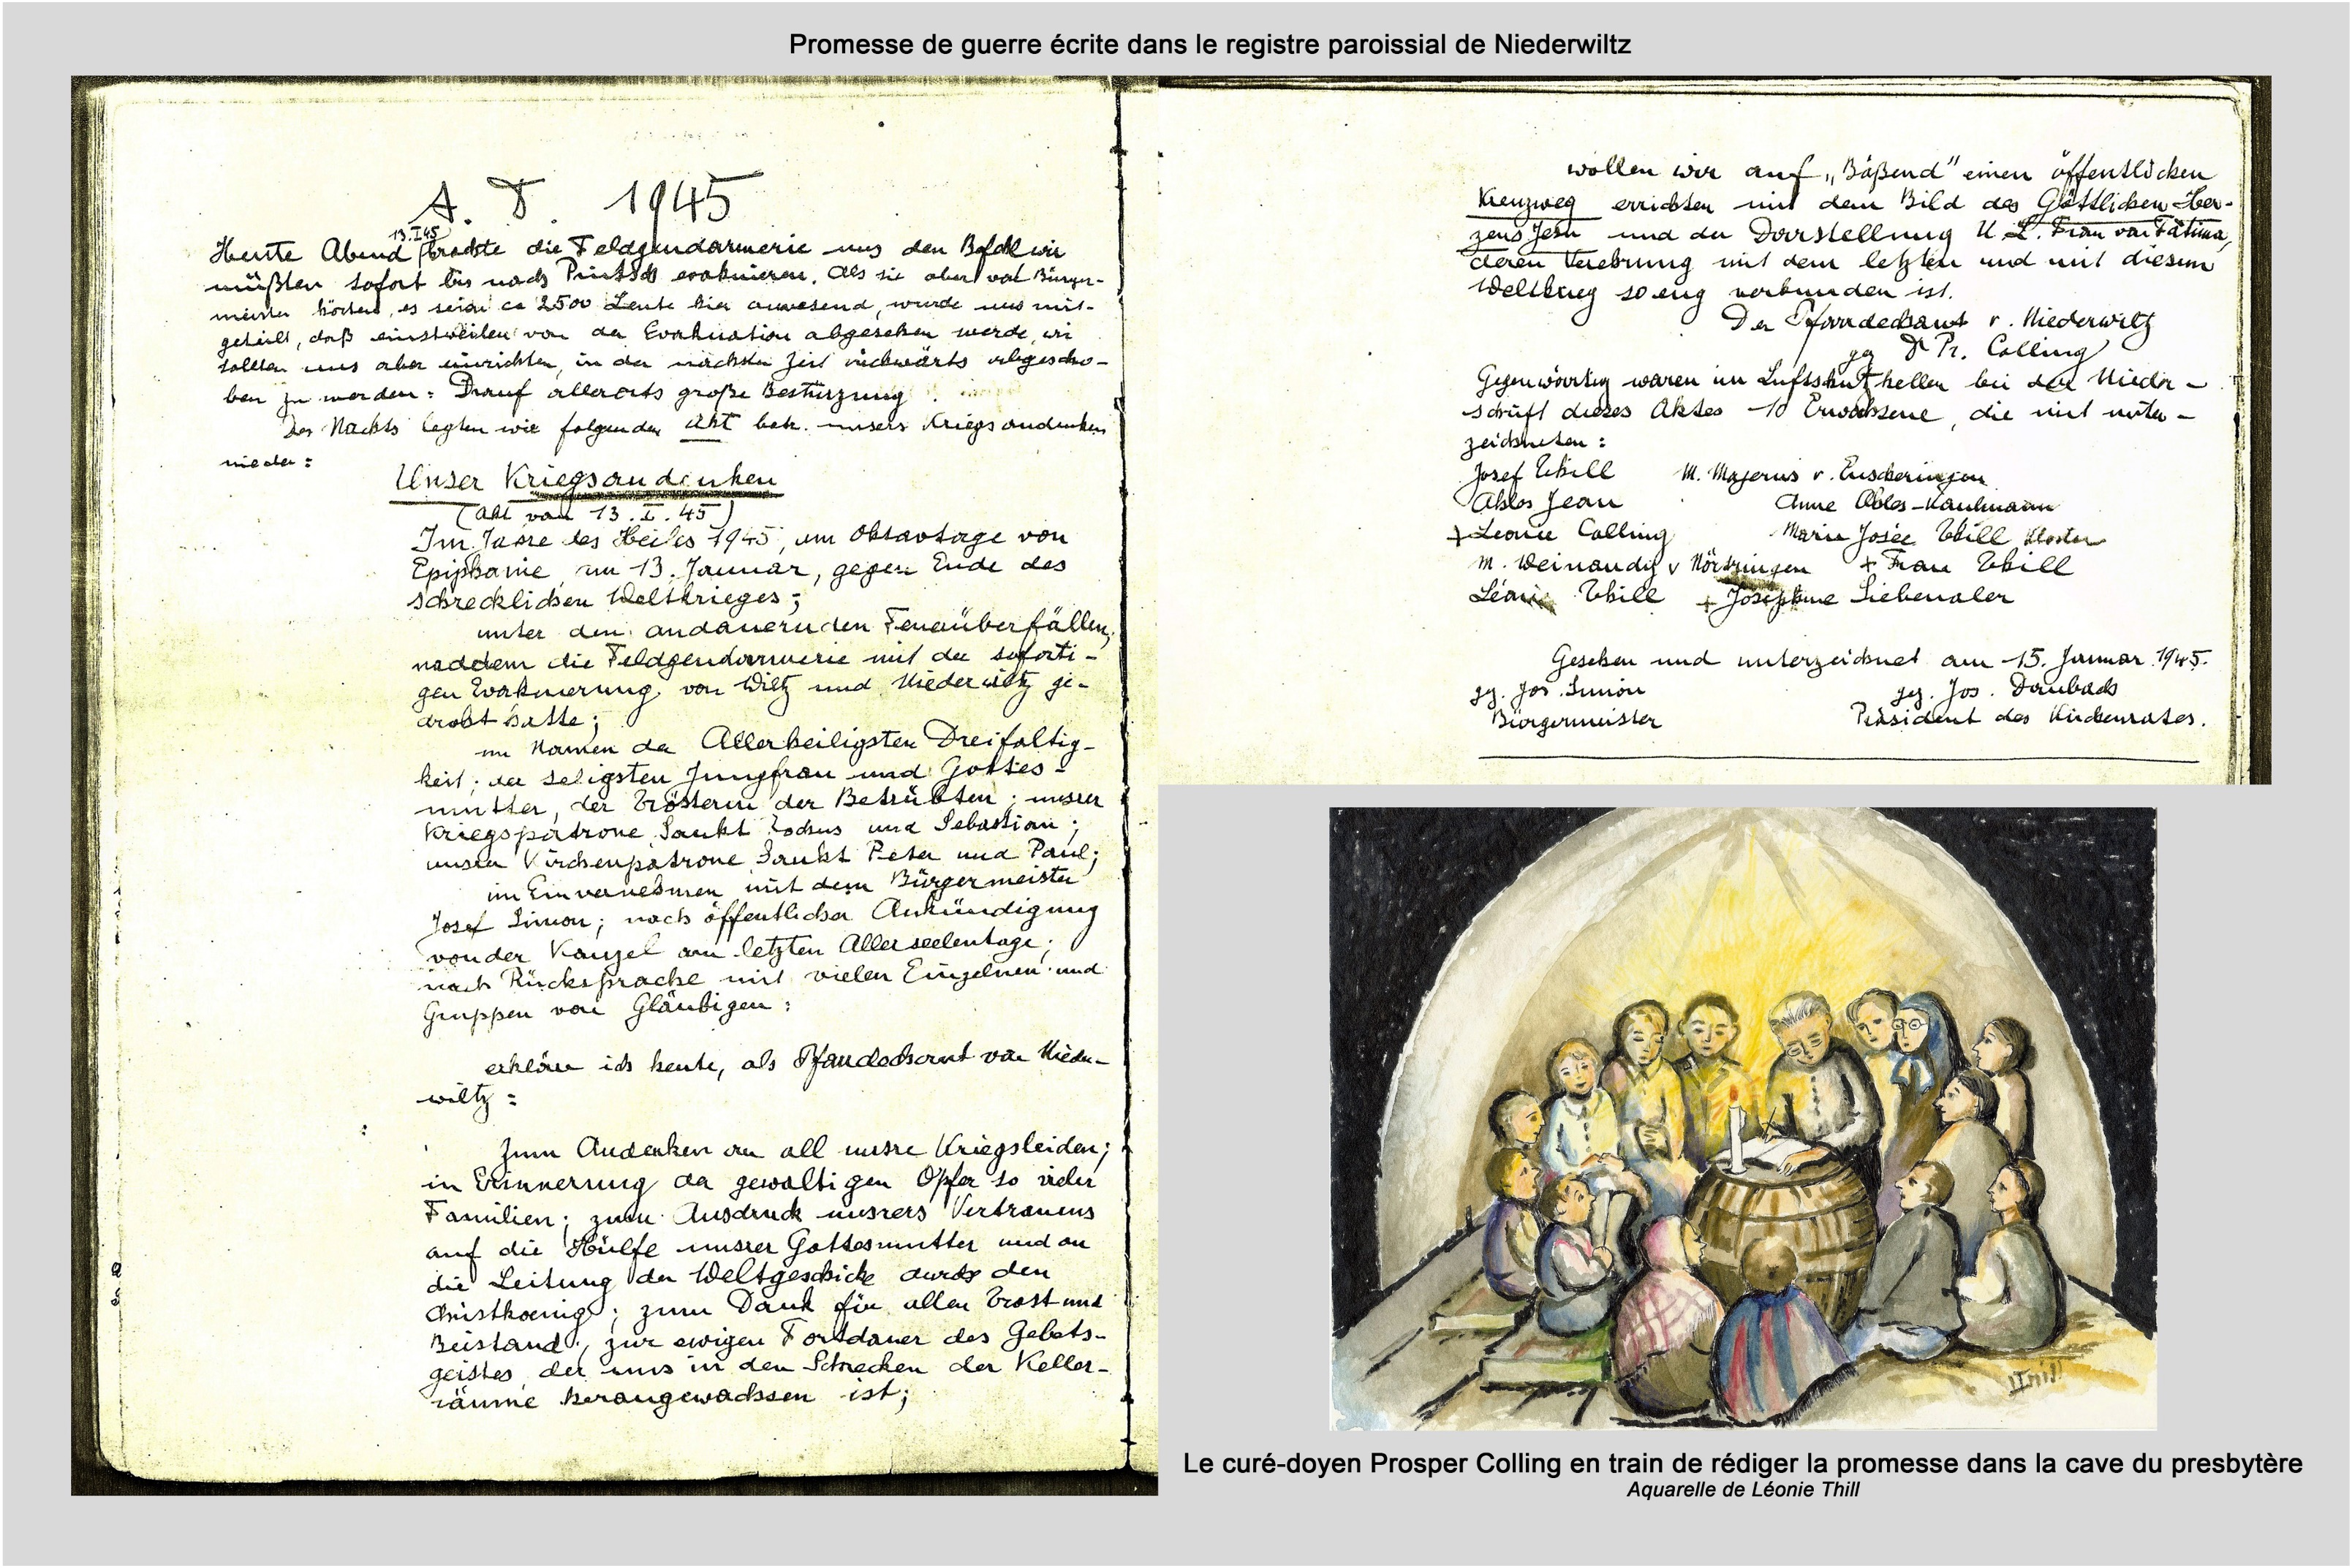 Promesse de guerre écrite dans le registre paroissial de Niederwiltz
A. D. 1945
13.I.45
Heute Abend brachte die Feldgendarmerie uns den Befehl wir
müßten sofort bis nach evakuieren. Als sie aber vom Bürger-
meister hörten, es seien ca 2500 Leute hier anwesend, wurde uns mit-
geteilt, daß einstweilen von der Evakuation abgesehen werde, wir
sollten uns aber einrichten, in der nächsten Zeit rückwärts abgescho-
ben zu werden: Drauf allerorts große Bestürzung.
Des Nachts legten wir folgenden Akt betr. unsers Kriegsandenken
nieder:
Unser Kriegsandenken
(Akt vom 13.I.45)
Im Jahre des Heiles 1945, am Oktavtage von
Epiphanie, am 13. Januar, gegen Ende des
schrecklichen Weltkrieges;
unter den andauernden Feuerüberfällen,
nachdem die Feldgendarmerie mit der soforti-
gen Evakuierung von Wiltz und Niederwiltz ge-
droht hatte;
im Namen der Allerheiligsten Dreifaltig-
keit; der seligsten Jungfrau und Gottes-
mutter, der Trösterin der Betrübten; unsrer
Kriegspatrone Sankt Rochus und Sebastian;
unsrer Kirchenpatrone Sankt Peter und Paul;
im Einvernehmen mit dem Bürgermeister
Josef Simon; nach öffentlicher Ankündigung
von der Kanzel am letzten Allerseelentage;
nach Rücksprache mit vielen Einzelnen und
Gruppen von Gläubigen:
erkläre ich heute, als Pfarrdechant von Nieder-
wiltz:
Zum Andenken an all unsre Kriegsleiden;
in Erinnerung der gewaltigen Opfer so vieler
Familien; zum Ausdruck unsrers Vertrauens
auf die Hülfe unsrer Gottesmutter und an
die Leitung der Weltgeschicke durch den
Christkoenig; zum Dank für allen Trost und
Beistand; zur ewigen Fortdauer des Gebets-
geistes, der uns in den Schrecken der Keller-
räume herangewachsen ist;
wollen wir auf „Bäßend" einen öffentlichen
Kreuzweg errichten mit dem Bild des Göttlichen Her-
zens Jesu und der Darstellung U. L. Frau von Fatima,
deren Verehrung mit dem letzten und mit diesem
Weltkrieg so eng verbunden ist.
Der Pfarrdechant v. Niederwiltz
gez Dr Pr. Colling
Gegenwärtig waren im Luftschutzkeller bei der Nieder-
schrift dieses Aktes 10 Erwachsene, die mit unter-
zeichneten:
Josef Thill M. Majerus v. Enscheringen
Ahles Jean Anne Ahles-Kaulmann
+ Leonie Colling Marie Josée Thill Kloster
M. Weinandy v Nörtringen + Frau Thill
Léonie Thill + Josephine Siebenaler
Gesehen und unterzeichnet am 15. Januar 1945.
gz. Jos. Simon gez. Jos. Daubach
Bürgermeister Präsident des Kirchenrates.
Thill
Le curé-doyen Prosper Colling en train de rédiger la promesse dans la cave du presbytère
Aquarelle de Léonie Thill